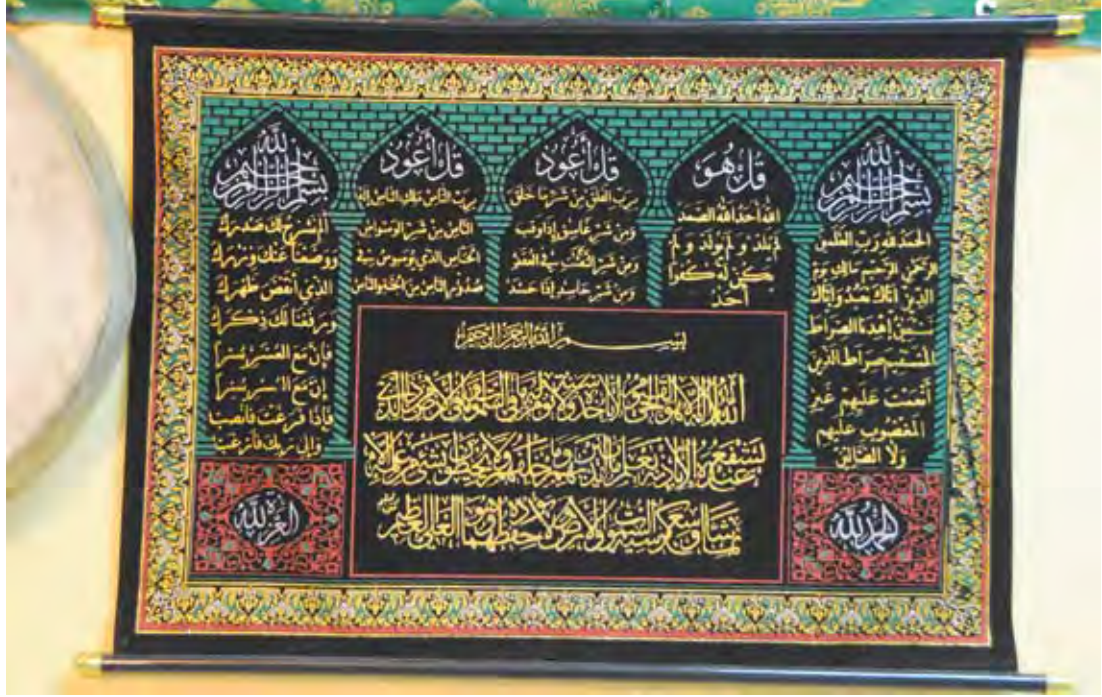 بسم الله الرحمن الرحيم
الحمد لله رب العلمين
الرحمن الرحيم مالك يوم
الدين اياك نعبد واياك
نستعين إهدنا الصراط
المستقيم صراط الذين
أنعمت عليهم غير
المغضوب عليهم
ولا الضالين
الحمد لله
قل هو
الله أحد الله الصمد
لم يلد و لم يولد و لم
يكن له كفوا
أحد
قل أعوذ
برب الفلق من شر ما خلق
ومن شر غاسق إذا وقب
ومن شر النفثت في العقد
ومن شر حاسد إذا حسد
قل أعوذ
برب الناس ملك الناس إله
الناس من شر الوسواس
الخناس الذي يوسوس في
صدور الناس من الجنة والناس
بسم الله الرحمن الرحيم
ألم نشرح لك صدرك
ووضعنا عنك وزرك
الذي أنقض ظهرك
ورفعنا لك ذكرك
فإن مع العسر يسرا
إن مع العسر يسرا
فإذا فرغت فانصب
وإلى ربك فارغب
العزة لله
بسم الله الرحمن الرحيم
الله لا إله إلا هو الحي القيوم لا تأخذه سنة ولا نوم له ما في السموات وما في الأرض من ذا الذي
يشفع عنده إلا بإذنه يعلم ما بين أيديهم وما خلفهم ولا يحيطون بشيء من علمه إلا
بما شاء وسع كرسيه السموات والأرض ولا يؤده حفظهما وهو العلي العظيم